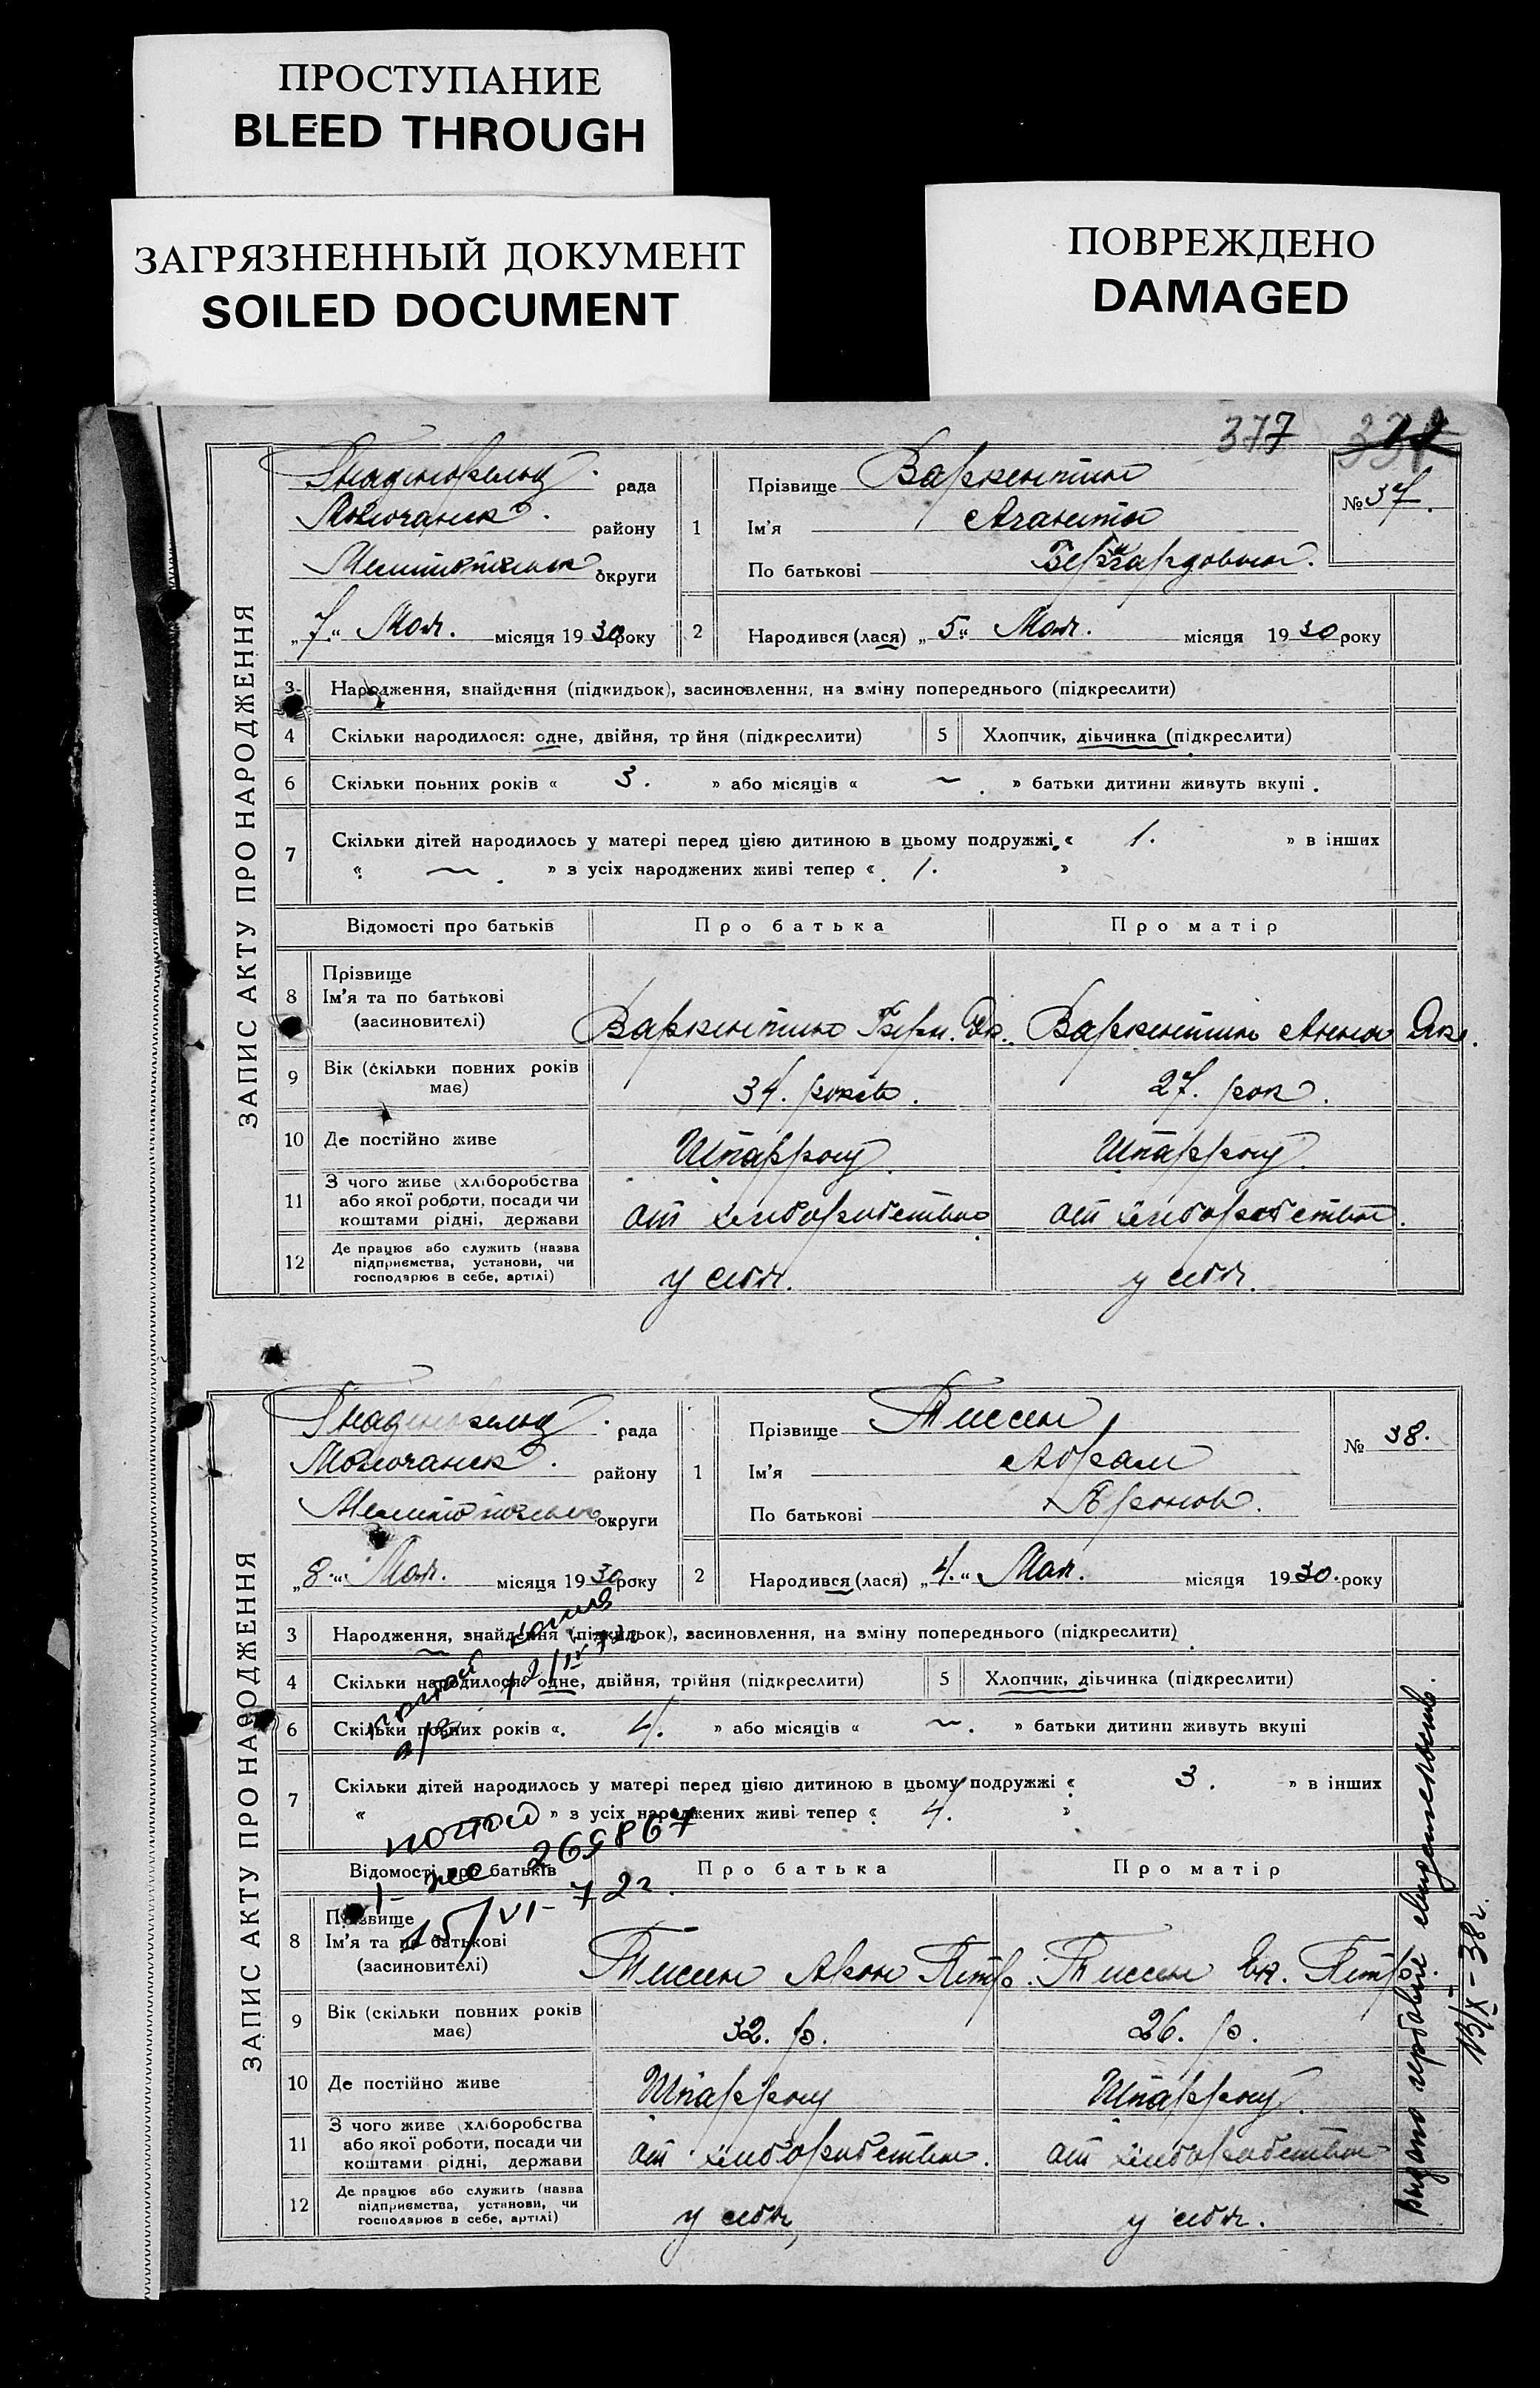 ПРОСТУПАНИЕ
BLEED THROUGH
ЗАГРЯЗНЕННЫЙ ДОКУМЕНТ
SOILED DOCUMENT
ПОВРЕЖДЕНО
DAMAGED
377
ЗАПИС АКТУ ПРО НАРОДЖЕННЯ
Гнаденфельд рада
Молочанск району
Мелитопольск округи
„7“ Мая. місяця 1930 року
1 Прізвище Варкентин
Ім'я Аганита
По батькові Бернгардовна.
№ 37.
2 Народився (лася) „5“ Мая. місяця 1930 року
3 Народження, знайдення (підкидьок), засиновлення, на зміну попереднього (підкреслити)
4 Скільки народилося: одне, двійня, трійня (підкреслити) 5 Хлопчик, дівчинка (підкреслити)
6 Скільки повних років « 3. » або місяців « — » батьки дитини живуть вкупі.
7 Скільки дітей народилось у матері перед цією дитиною в цьому подружжі « 1. » в інших
« — » з усіх народжених живі тепер « 1. »
Відомості про батьків Про батька Про матір
8 Прізвище
Ім'я та по батькові
(засиновителі)
Варкентин Берн. Як. Варкентин Анна Як.
9 Вік (скільки повних років має) 34. років. 27. рок.
10 Де постійно живе Шпаррау Шпаррау.
11 З чого живе (хліборобства
або якої роботи, посади чи
коштами рідні, держави
от хлиборобства от хлиборобства.
12 Де працює або служить (назва
підприємства, установи, чи
господарює в себе, артілі)
у себя. у себя.
ЗАПИС АКТУ ПРО НАРОДЖЕННЯ
Гнаденфельд рада
Молочанск району
Мелитопольск округи
„8“ Мая. місяця 1930 року
1 Прізвище Тиссен
Ім'я Абрам
По батькові Аронов.
№ 38.
2 Народився (лася) „4.“ Мая. місяця 1930. року
3 Народження, знайдення (підкидьок), засиновлення, на зміну попереднього (підкреслити)
4 Скільки народилося: одне, двійня, трійня (підкреслити) 5 Хлопчик, дівчинка (підкреслити)
6 Скільки повних років « 4. » або місяців « — . » батьки дитини живуть вкупі
7 Скільки дітей народилось у матері перед цією дитиною в цьому подружжі « 3. » в інших
« » з усіх народжених живі тепер « 4. »
269867
15/VI-72г.
Відомості про батьків Про батька Про матір
8 Прізвище
Ім'я та по батькові
(засиновителі)
Тиссен Арон Петр. Тиссен Ек. Петр.
9 Вік (скільки повних років має) 32. р. 26. р.
10 Де постійно живе Шпаррау Шпаррау.
11 З чого живе (хліборобства
або якої роботи, посади чи
коштами рідні, держави
от хлиборобства. от хлиборобства
12 Де працює або служить (назва
підприємства, установи, чи
господарює в себе, артілі)
у себя, у себя.
выдано гербовые свидетельств.
13/IX-38г.